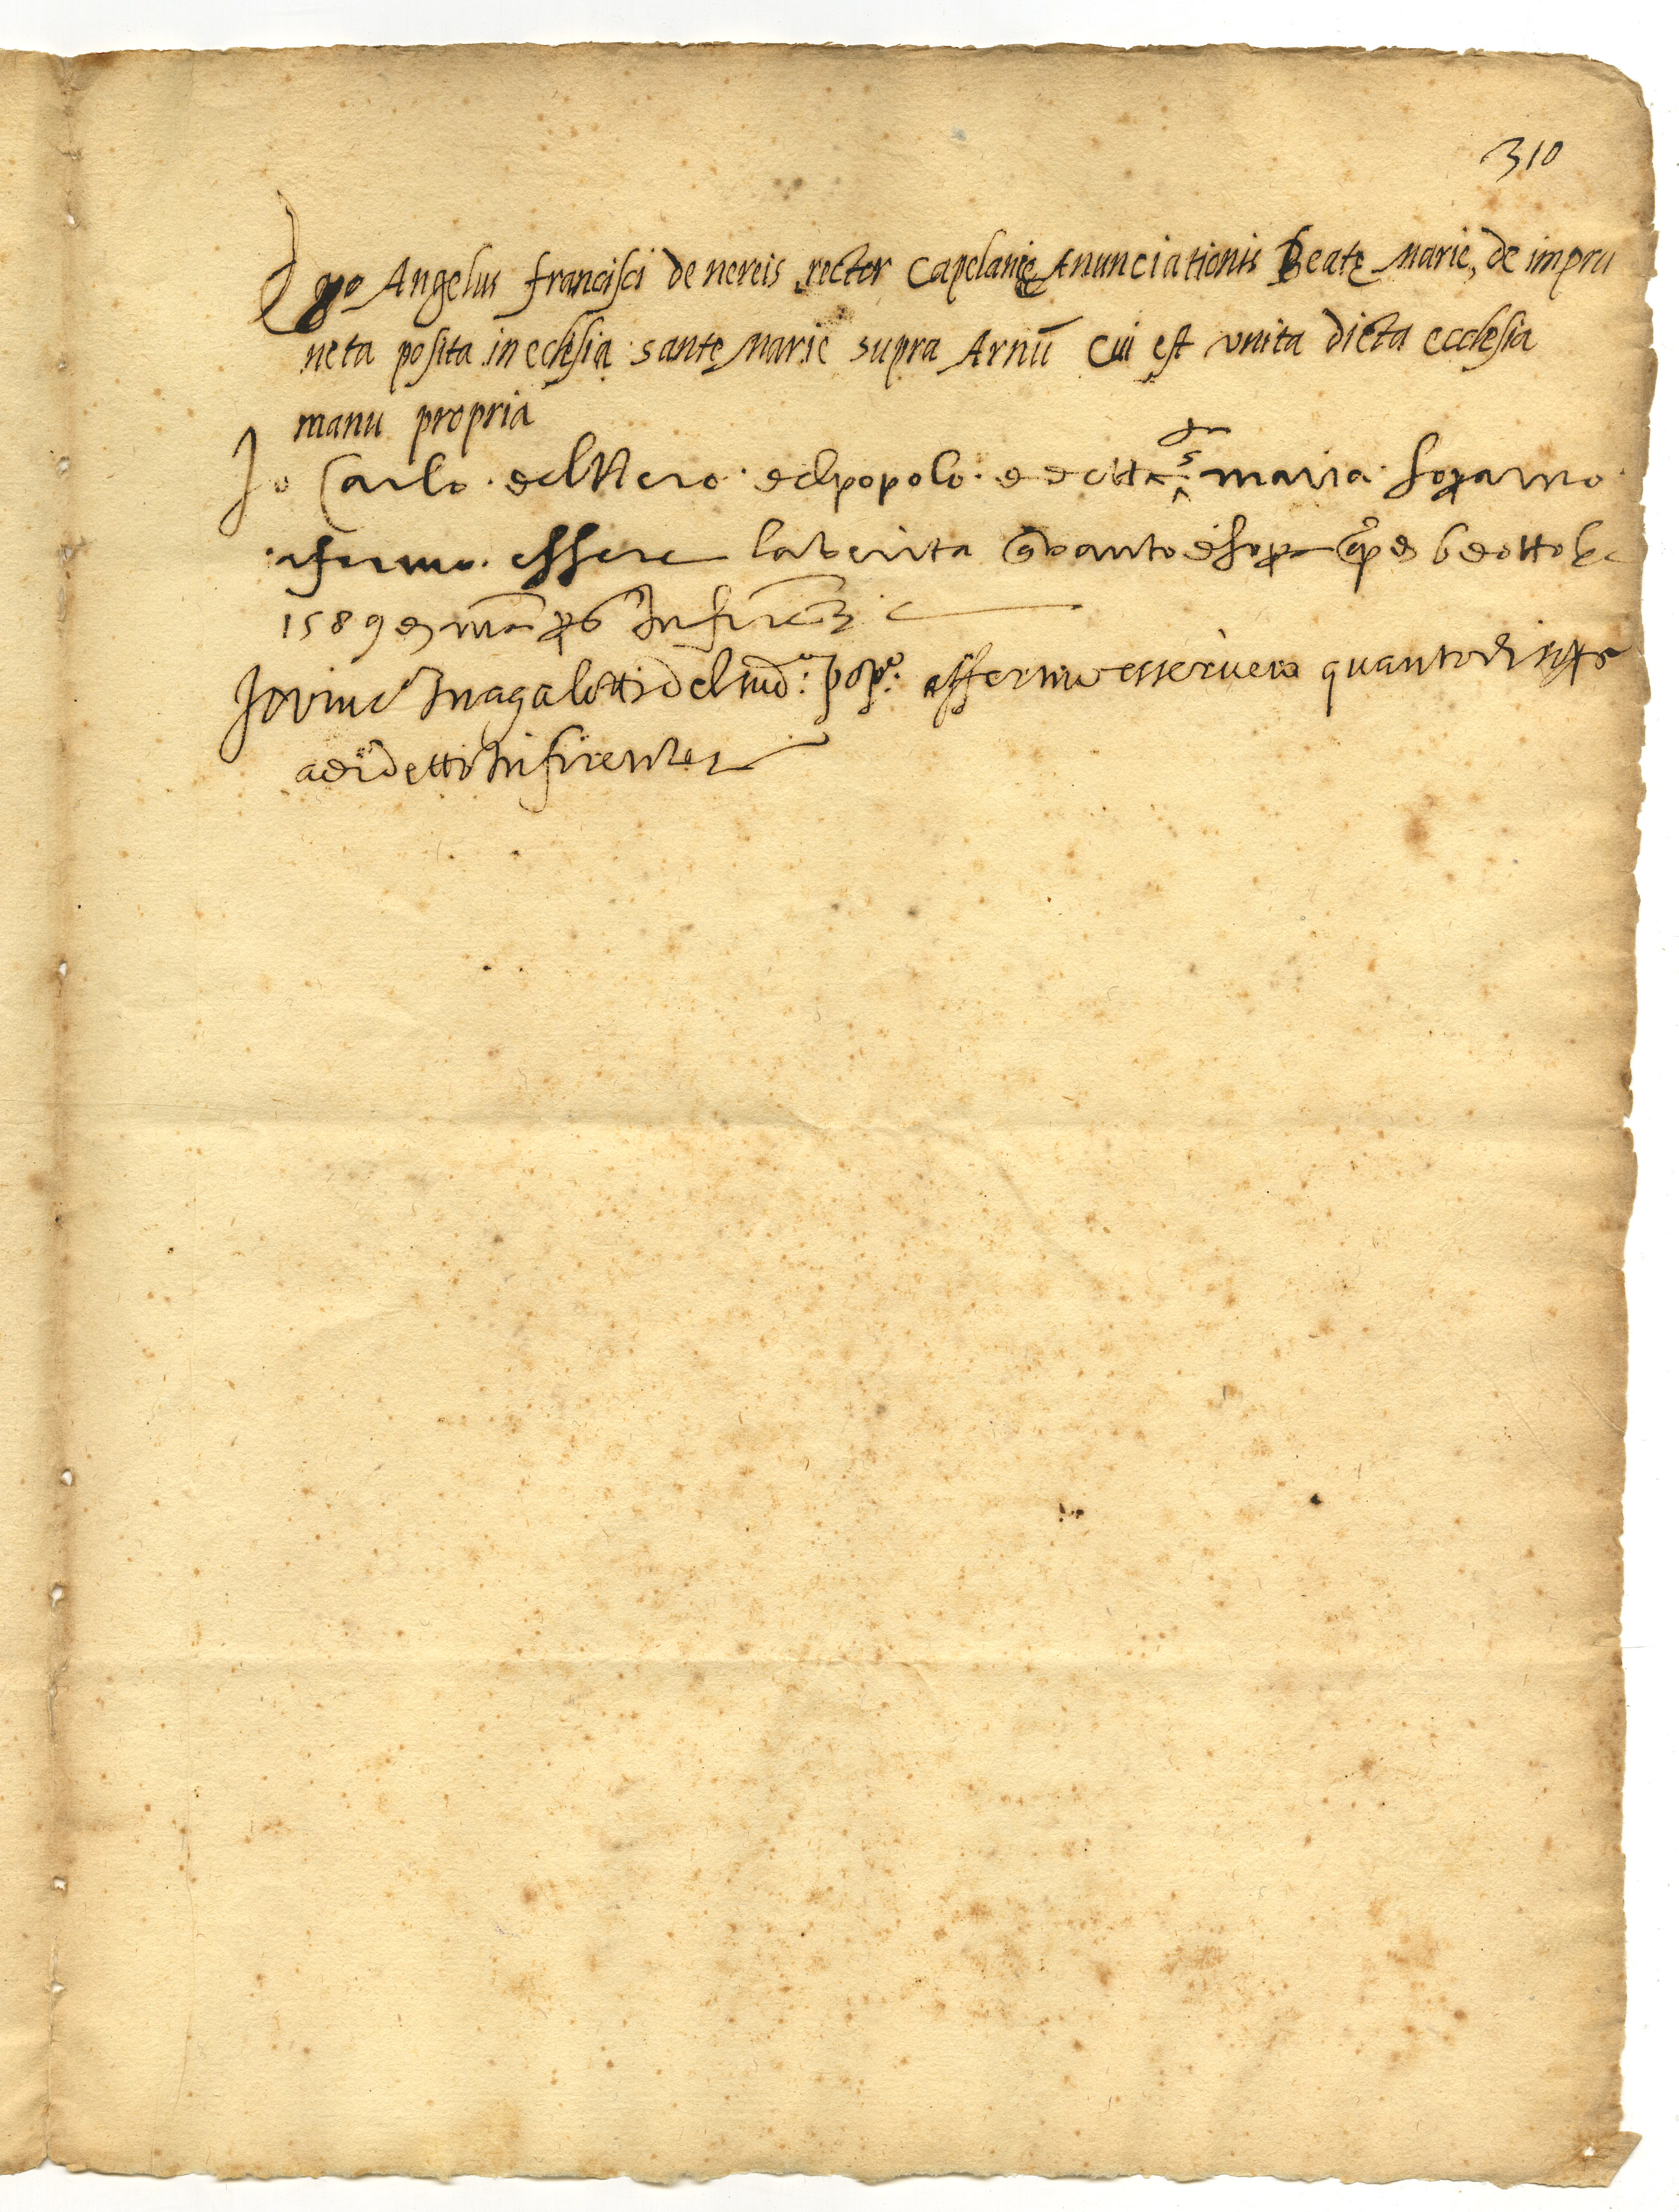 310
Ego Angelus francisci de nereis rector Capelanię Anunciationis Beatę Marie, de impru
neta posita in eclesia santę Marie supra Arnū cui est vnita dicta ecclesia
manu propria
Io Carlo . del Nero . del popolo . de detta s.ta maria . sopra arno .
afermo . essere la verita quanto di sopra q.o di 6 di ottobe
1589 di mā pō In firēze
Io vinc.o Magalotti del sud.o: pop.o: affermo esser vero quanto di sopra
a di detto In firenze